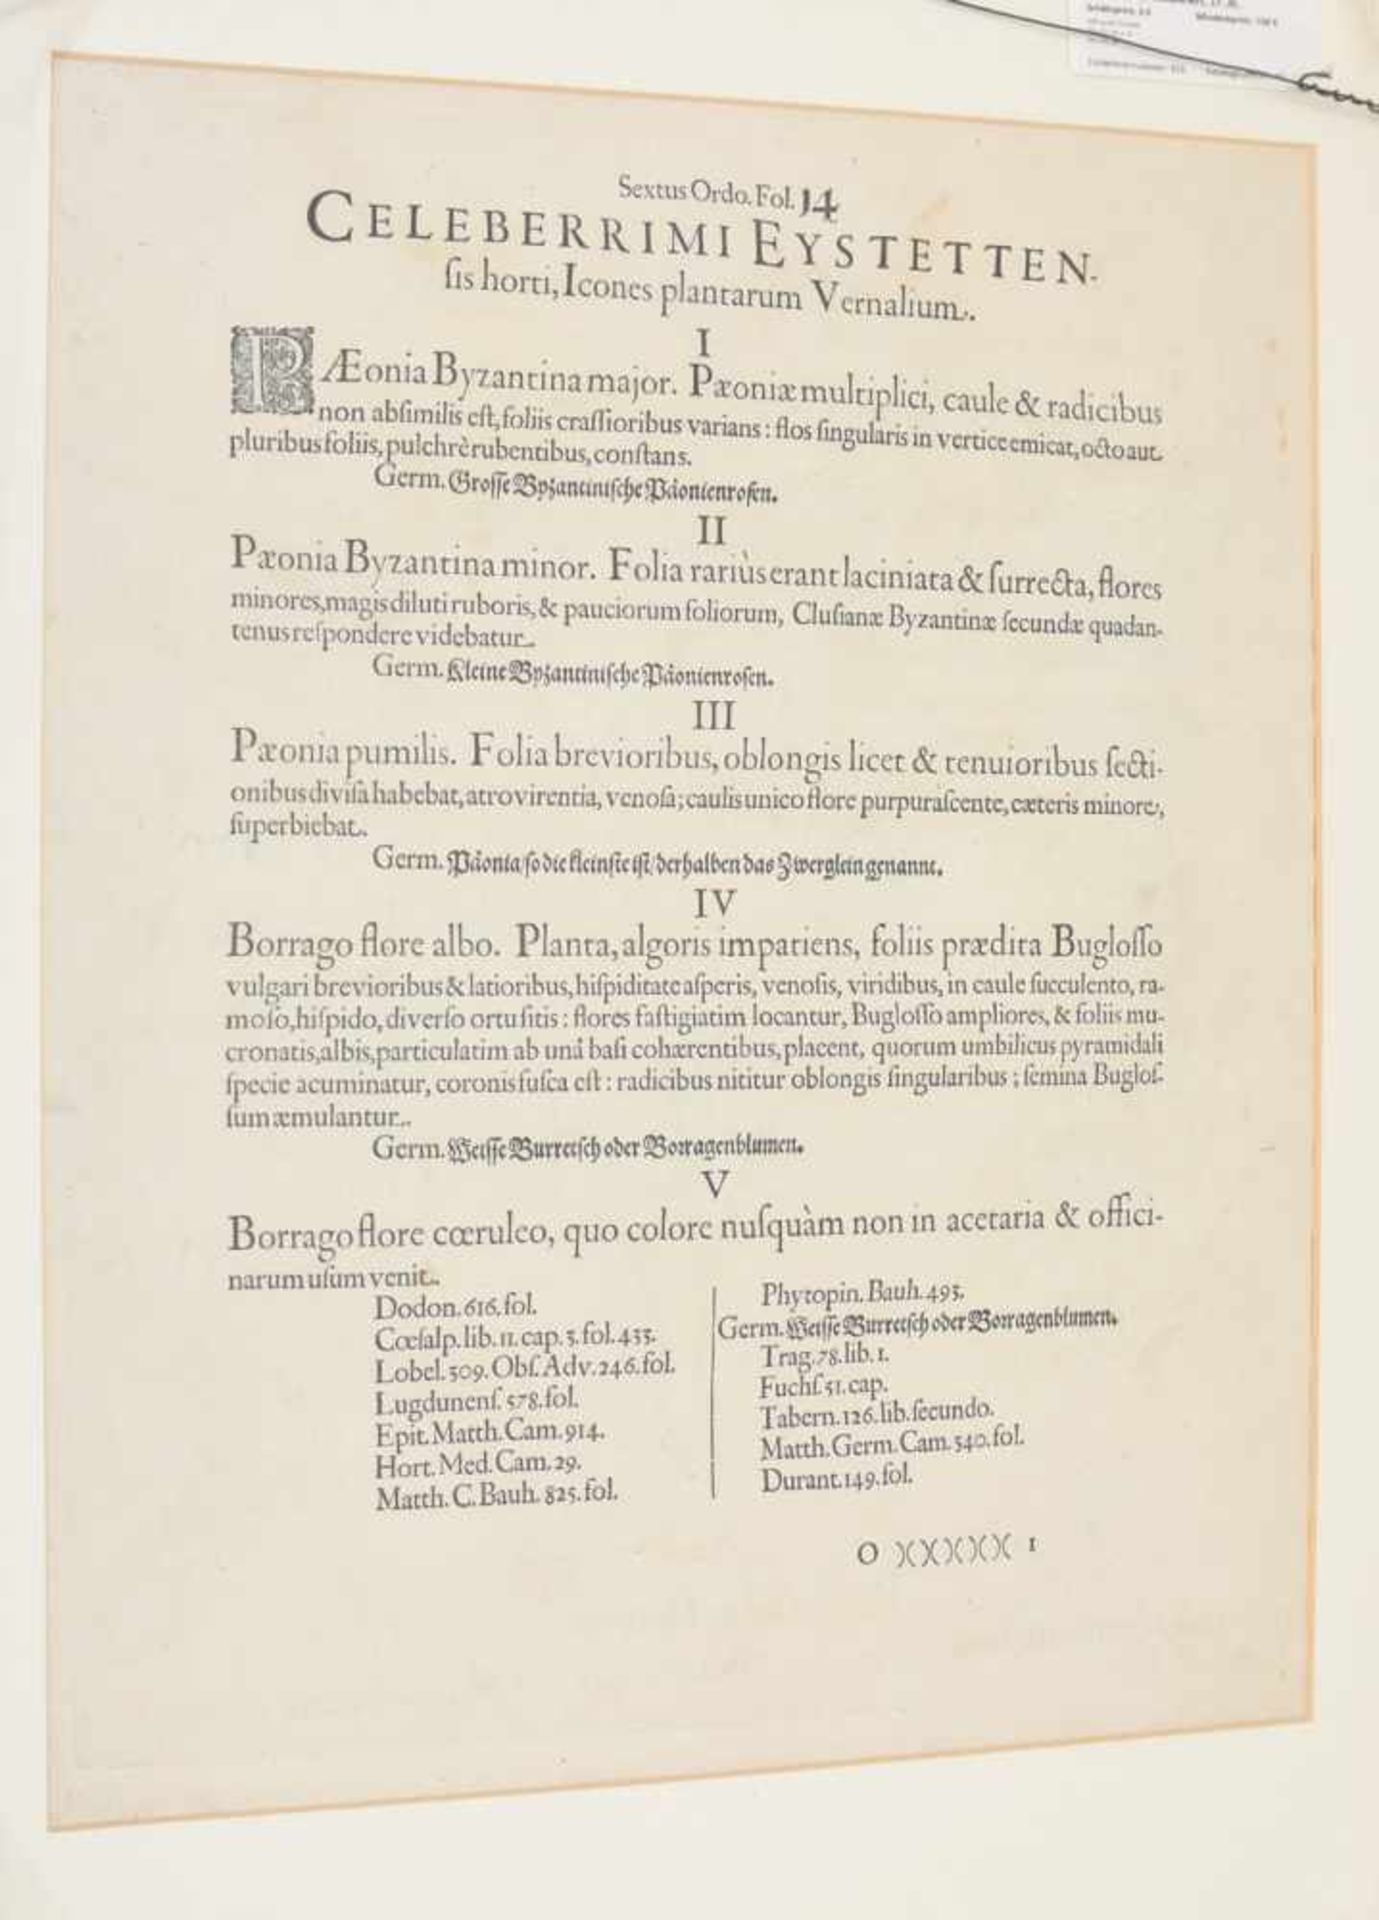 Sextus Ordo. Fol. 14
CELEBERRIMI EYSTETTEN-
ſis horti, Icones plantarum Vernalium.
I
PÆonia Byzantina major. Pæoniæ multiplici, caule & radicibus
non abſimilis eſt, foliis craſſioribus varians: flos ſingularis in vertice emicat, octo aut
pluribus foliis, pulchrè rubentibus, conſtans.
Germ. Groſſe Byzantiniſche Päonienroſen.
II
Pæonia Byzantina minor. Folia rariùs erant laciniata & ſurrecta, flores
minores, magis diluti ruboris, & pauciorum foliorum, Cluſianæ Byzantinæ ſecundæ quadan-
tenus reſpondere videbatur.
Germ. Kleine Byzantiniſche Päonienroſen.
III
Pæonia pumilis. Folia brevioribus, oblongis licet & tenuioribus ſecti-
onibus diviſa habebat, atrovirentia, venoſa; caulis unico flore purpuraſcente, cæteris minore,
ſuperbiebat.
Germ. Päonia / ſo die kleinſte iſt / derhalben das Zwerglein genannt.
IV
Borrago flore albo. Planta, algoris impatiens, foliis prædita Bugloſſo
vulgari brevioribus & latioribus, hiſpiditate aſperis, venoſis, viridibus, in caule ſucculento, ra-
moſo, hiſpido, diverſo ortu ſitis: flores faſtigiatim locantur, Bugloſſo ampliores, & foliis mu-
cronatis, albis, particulatim ab unâ baſi cohærentibus, placent, quorum umbilicus pyramidali
ſpecie acuminatur, coronis fuſca eſt: radicibus nititur oblongis ſingularibus; ſemina Bugloſ-
ſum æmulantur.
Germ. Weiſſe Burretſch oder Borragenblumen.
V
Borrago flore cœruleo, quo colore nuſquàm non in acetaria & offici-
narum uſum venit.
Dodon. 616. fol.
Cœſalp. lib. 11. cap. 5. fol. 433.
Lobel. 309. Obſ. Adv. 246. fol.
Lugdunenſ. 578. fol.
Epit. Matth. Cam. 914.
Hort. Med. Cam. 29.
Matth. C. Bauh. 825. fol.
Phytopin. Bauh. 493.
Germ. Weiſſe Burretſch oder Borragenblumen.
Trag. 78. lib. 1.
Fuchſ. 51. cap.
Tabern. 126. lib. ſecundo.
Matth. Germ. Cam. 540. fol.
Durant. 149. fol.
O )( )( )( )( )( 1